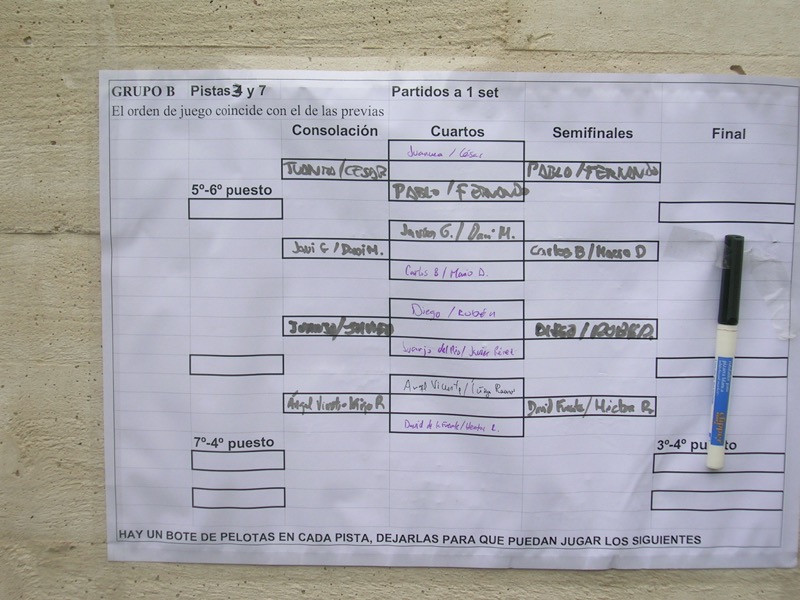 GRUPO B Pistas 3 y 7 Partidos a 1 set
El orden de juego coincide con el de las previas
Consolación Cuartos Semifinales Final
/ César
JUANITO/CESAR PABLO/FERNANDO
5º-6º puesto PABLO/FERNANDO
Javier G./Dani M.
Javi G/Dani M. Carlos B/Mario D
Carlos B/Mario D.
Diego/Rubén
DIEGO/RUBEN
Juanjo del Pío/Javier Pérez
Angel Vicente/Iñigo
Ángel Vicente-Iñigo R David Fuente/Héctor R.
David de la Fuente/Hector R.
7º-4º puesto 3º-4º
HAY UN BOTE DE PELOTAS EN CADA PISTA, DEJARLAS PARA QUE PUEDAN JUGAR LOS SIGUIENTES